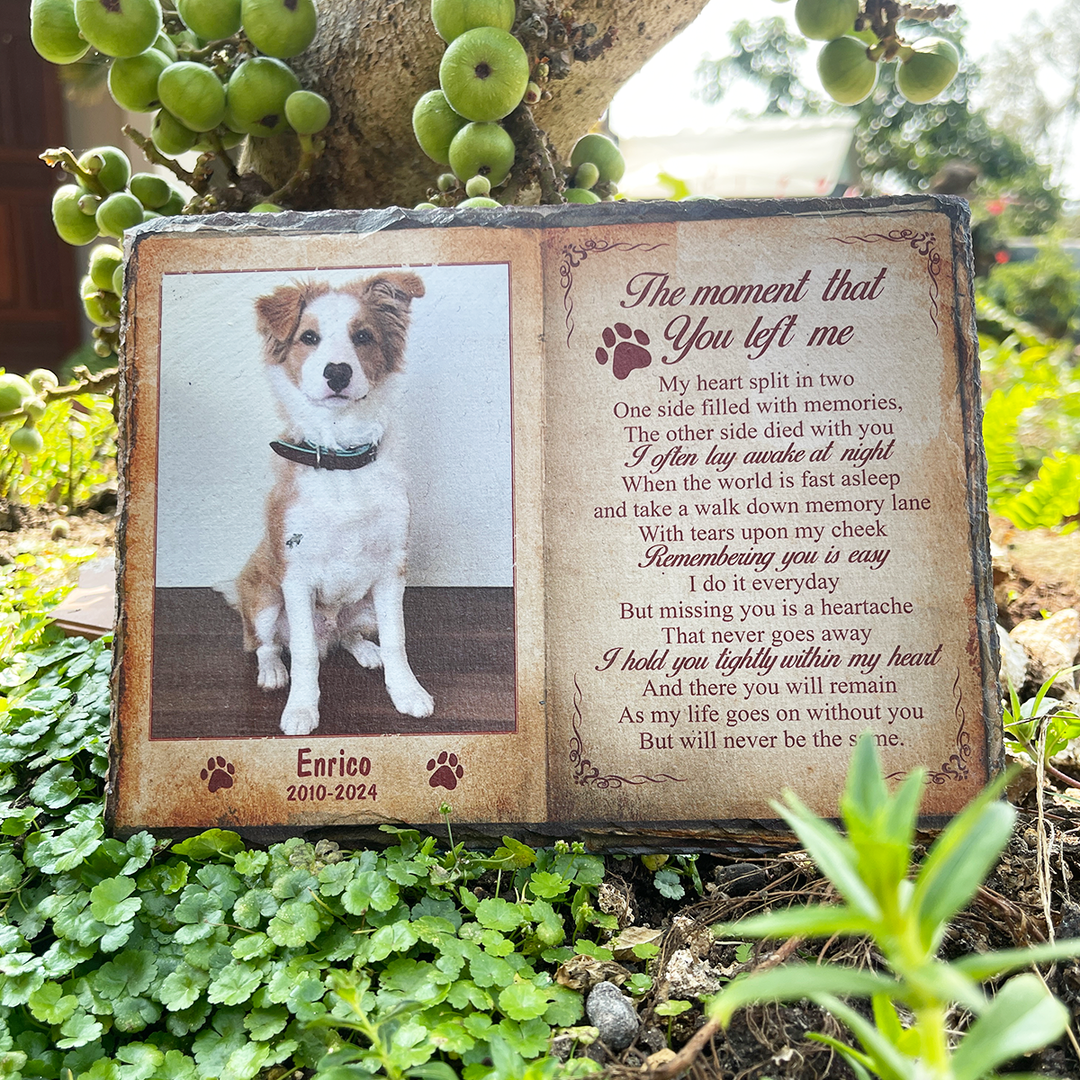 Enrico
2010-2024
The moment that
You left me
My heart split in two
One side filled with memories,
The other side died with you
I often lay awake at night
When the world is fast asleep
and take a walk down memory lane
With tears upon my cheek
Remembering you is easy
I do it everyday
But missing you is a heartache
That never goes away
I hold you tightly within my heart
And there you will remain
As my life goes on without you
But will never be the same.